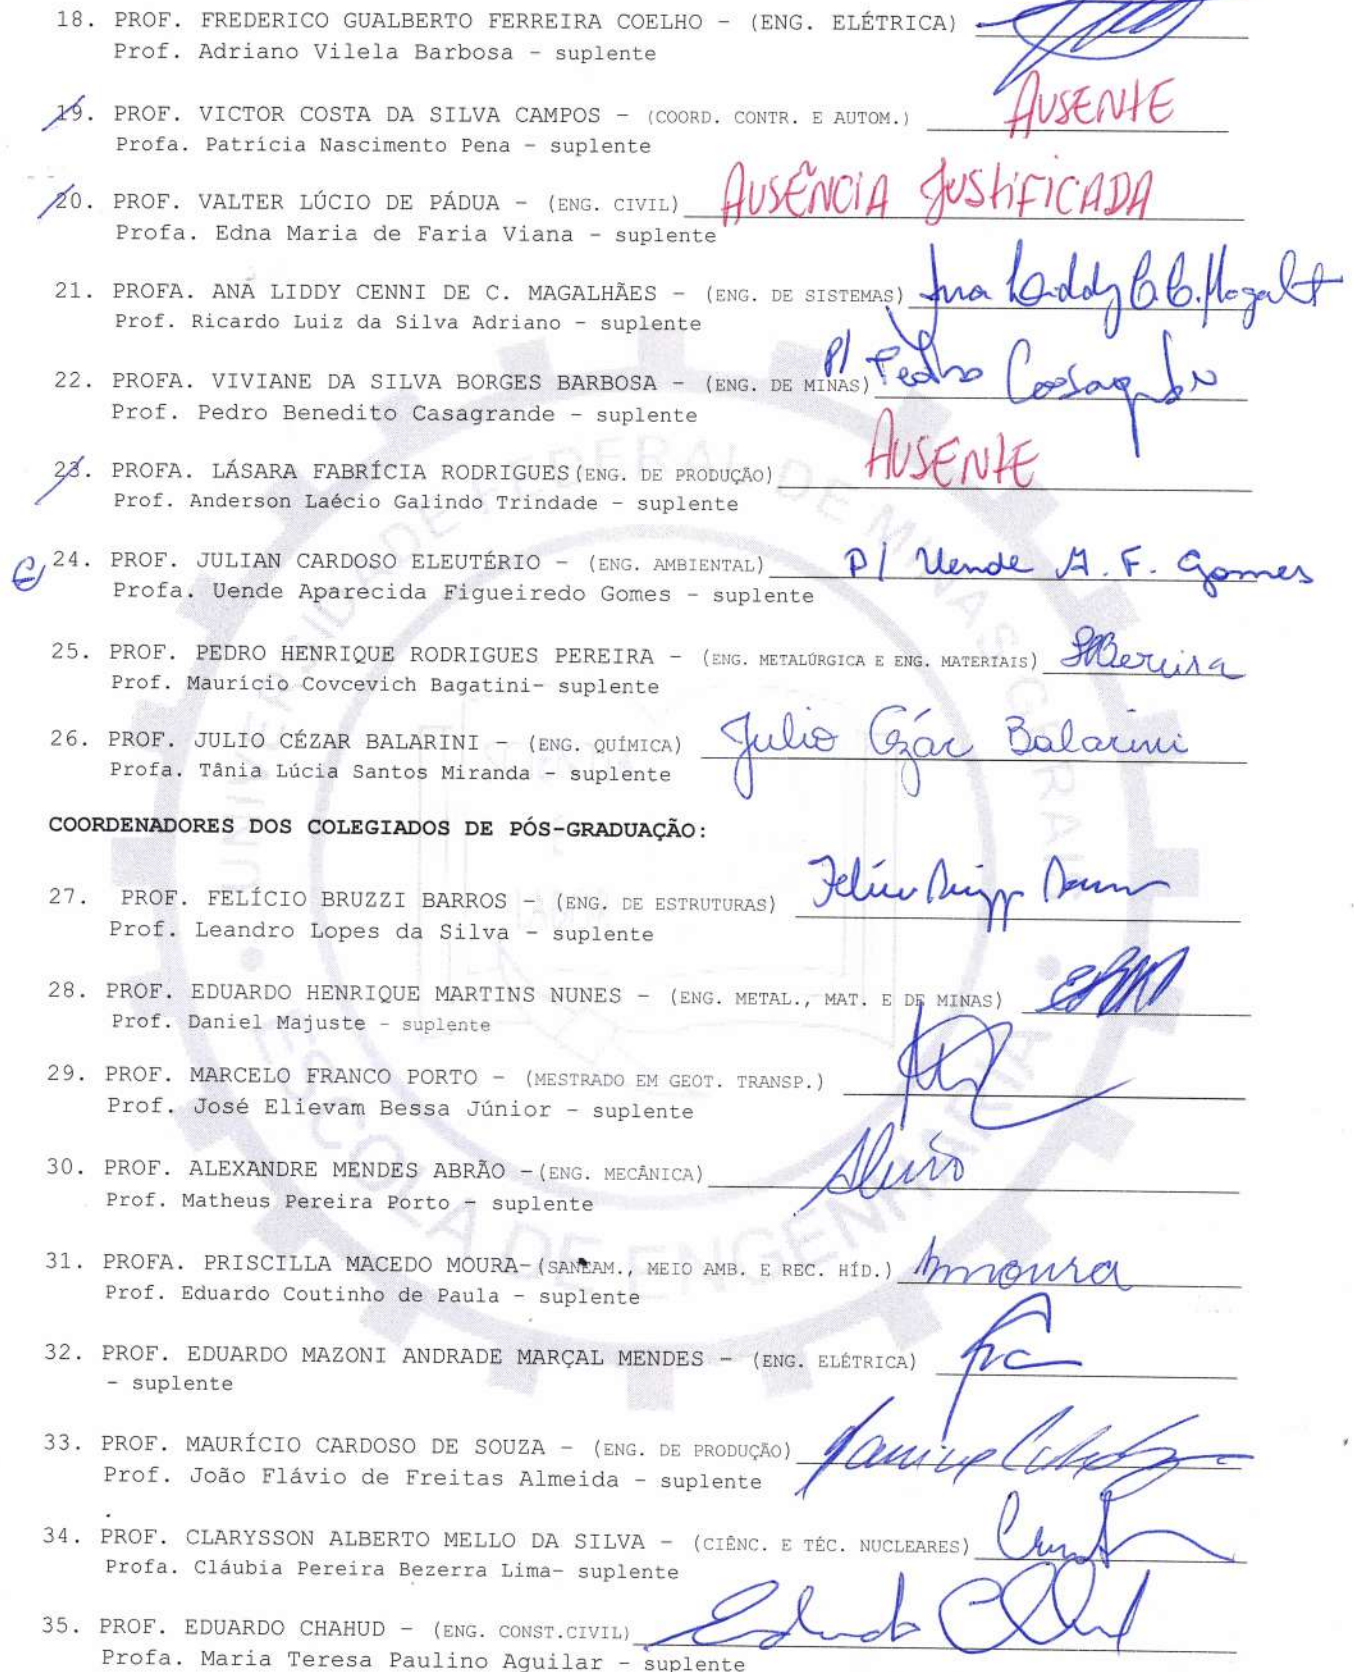 18. PROF. FREDERICO GUALBERTO FERREIRA COELHO - (ENG. ELÉTRICA)
Prof. Adriano Vilela Barbosa - suplente
19. PROF. VICTOR COSTA DA SILVA CAMPOS - (COORD. CONTR. E AUTOM.) AUSENTE
Profa. Patrícia Nascimento Pena - suplente
20. PROF. VALTER LÚCIO DE PÁDUA - (ENG. CIVIL) AUSÊNCIA JUSTIFICADA
Profa. Edna Maria de Faria Viana - suplente
21. PROFA. ANA LIDDY CENNI DE C. MAGALHÃES - (ENG. DE SISTEMAS) Ana Liddy C.C. Magalh
Prof. Ricardo Luiz da Silva Adriano - suplente
22. PROFA. VIVIANE DA SILVA BORGES BARBOSA - (ENG. DE MINAS) P/ Pedro Casagrande
Prof. Pedro Benedito Casagrande - suplente
23. PROFA. LÁSARA FABRÍCIA RODRIGUES(ENG. DE PRODUÇÃO) AUSENTE
Prof. Anderson Laécio Galindo Trindade - suplente
24. PROF. JULIAN CARDOSO ELEUTÉRIO - (ENG. AMBIENTAL) P/ Uende A. F. Gomes
Profa. Uende Aparecida Figueiredo Gomes - suplente
25. PROF. PEDRO HENRIQUE RODRIGUES PEREIRA - (ENG. METALÚRGICA E ENG. MATERIAIS) Pereira
Prof. Maurício Covcevich Bagatini- suplente
26. PROF. JULIO CÉZAR BALARINI - (ENG. QUÍMICA) Julio Cézar Balarini
Profa. Tânia Lúcia Santos Miranda - suplente
COORDENADORES DOS COLEGIADOS DE PÓS-GRADUAÇÃO:
27. PROF. FELÍCIO BRUZZI BARROS - (ENG. DE ESTRUTURAS)
Prof. Leandro Lopes da Silva - suplente
28. PROF. EDUARDO HENRIQUE MARTINS NUNES - (ENG. METAL., MAT. E DE MINAS)
Prof. Daniel Majuste - suplente
29. PROF. MARCELO FRANCO PORTO - (MESTRADO EM GEOT. TRANSP.)
Prof. José Elievam Bessa Júnior - suplente
30. PROF. ALEXANDRE MENDES ABRÃO -(ENG. MECÂNICA)
Prof. Matheus Pereira Porto - suplente
31. PROFA. PRISCILLA MACEDO MOURA-(SANEAM., MEIO AMB. E REC. HÍD.) moura
Prof. Eduardo Coutinho de Paula - suplente
32. PROF. EDUARDO MAZONI ANDRADE MARÇAL MENDES - (ENG. ELÉTRICA)
- suplente
33. PROF. MAURÍCIO CARDOSO DE SOUZA - (ENG. DE PRODUÇÃO)
Prof. João Flávio de Freitas Almeida - suplente
34. PROF. CLARYSSON ALBERTO MELLO DA SILVA - (CIÊNC. E TÉC. NUCLEARES)
Profa. Cláubia Pereira Bezerra Lima- suplente
35. PROF. EDUARDO CHAHUD - (ENG. CONST.CIVIL) Eduardo
Profa. Maria Teresa Paulino Aguilar - suplente
UNIVERSIDADE FEDERAL DE MINAS GERAIS
ESCOLA DE ENGENHARIA